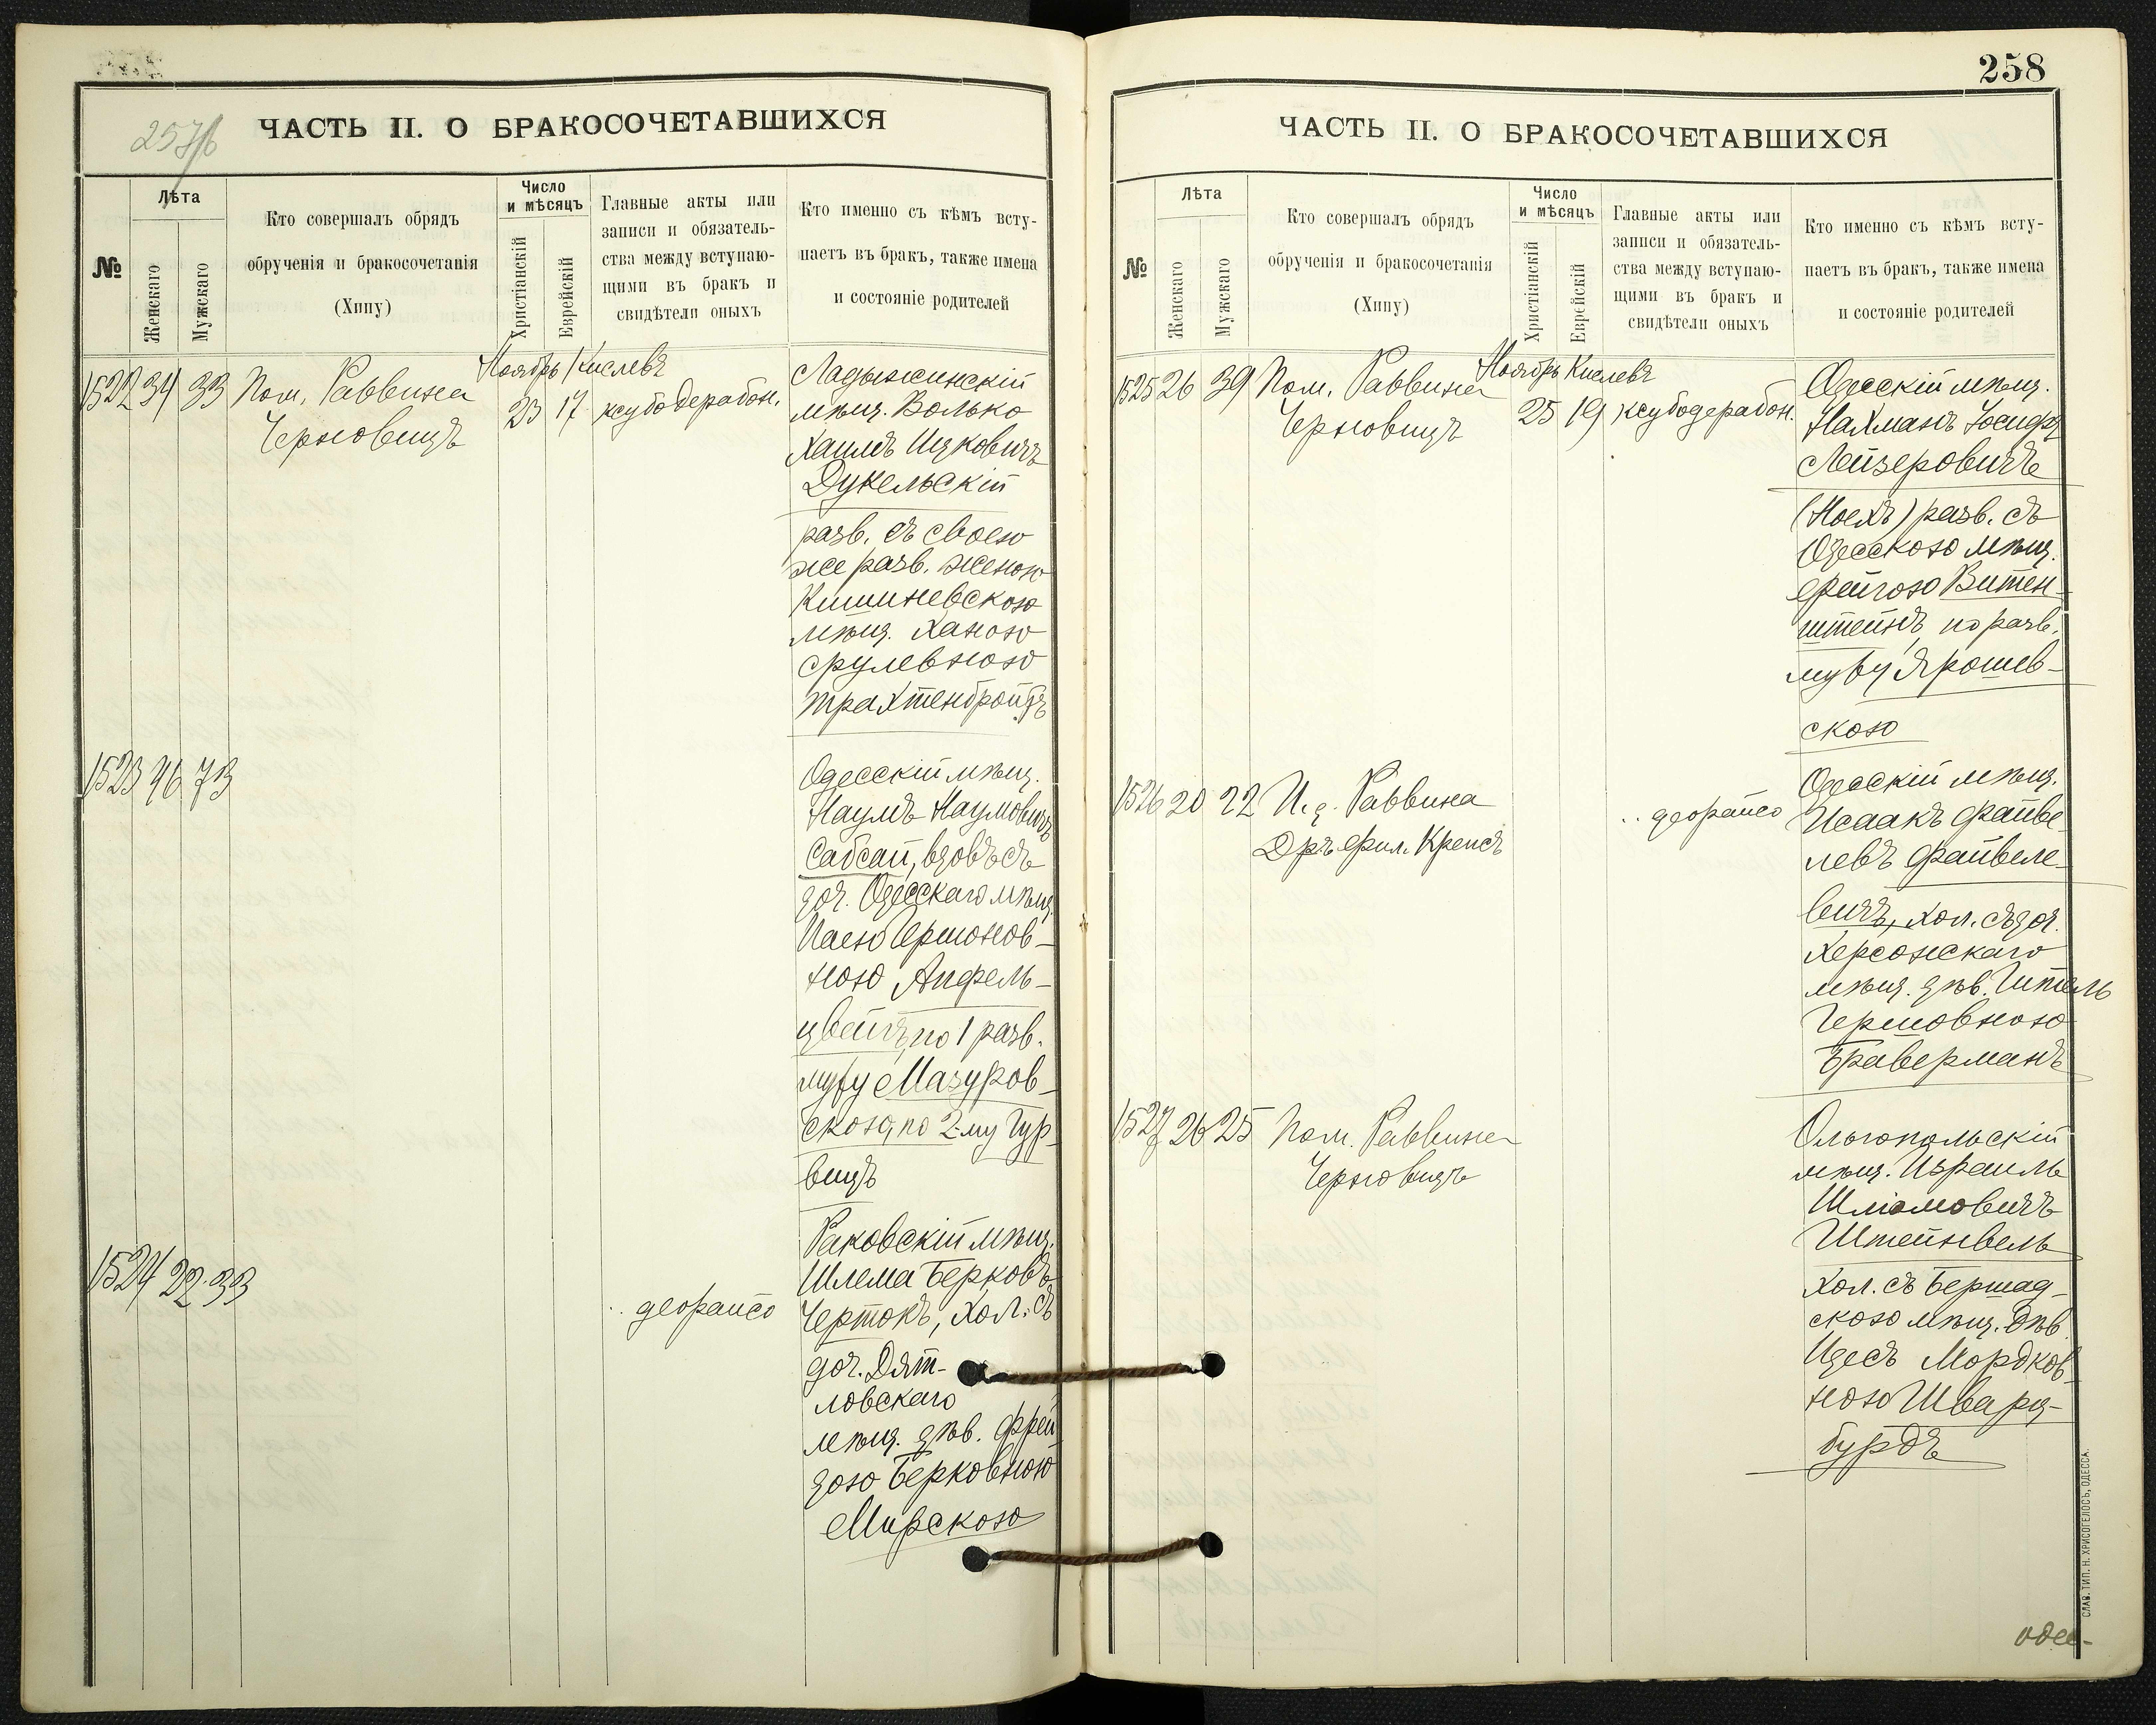 257/б
ЧАСТЬ II. О БРАКОСОЧЕТАВШИХСЯ
№
Лѣта
Женскаго
Мужскаго
Кто совершалъ обрядъ
обрученія и бракосочетанія
(Хипу)
Число
и мѣсяцъ
Христіанскій
Еврейскій
Главные акты или
записи и обязатель-
ства между вступаю-
щими въ бракъ и
свидѣтели оныхъ
Кто именно съ кѣмъ всту-
паетъ въ бракъ, также имена
и состояніе родителей
1522 34 33 Пом. Раввина
Черновицъ
Ноябрь Кислевъ
23 17 ксубодерабон.
Ладыжинскій
мѣщ. Волько
Хаимъ Ицковичъ
Дукельскій
разв. съ своею
же разв. женою
Кишиневскою
мѣщ. Ханою
Срулевною
Трахтенбройтъ
1523 46 73
Одесскій мѣщ.
Наумъ Наумовичъ
Сабсай, вдовъ съ
доч. Одесскаго мѣщ.
Ершонов-
ною Апфель-
цвейгъ, по 1 разв.
мужу Мазуров-
скою, по 2-му Гур-
вицъ
1524 22 33
деорайсо
Раковскій мѣщ.
Шлема Берковъ
Чертокъ, хол. съ
доч. Дят-
ловскаго
мѣщ. дѣв. Фрей-
дою Берковною
Мирскою
258
ЧАСТЬ II. О БРАКОСОЧЕТАВШИХСЯ
№
Лѣта
Женскаго
Мужскаго
Кто совершалъ обрядъ
обрученія и бракосочетанія
(Хипу)
Число
и мѣсяцъ
Христіанскій
Еврейскій
Главные акты или
записи и обязатель-
ства между вступаю-
щими въ бракъ и
свидѣтели оныхъ
Кто именно съ кѣмъ всту-
паетъ въ бракъ, также имена
и состояніе родителей
1525 26 39 Пом. Раввина
Черновицъ
Ноябрь Кислевъ
25 19 ксубодерабон.
Одесскій мѣщ.
Нахманъ Іосифъ
Лейзеровичъ
(Ноехъ) разв. съ
Одесскою мѣщ.
Фейгою Витен-
штейнъ по разв.
мужу Ярошев-
скою
1526 20 22 И. д. Раввина
Дръ Фил. Крепсъ
деорайсо
Одесскій мѣщ.
Исаакъ Файве-
левъ Файвеле-
вичъ, хол. съ доч.
Херсонскаго
мѣщ. дѣв. Итель
Гершовною
Браверманъ
1527 26 25 Пом. Раввина
Черновицъ
Ольгопольскій
мѣщ. Израиль
Шліомовичъ
Штейнвель
хол. съ Бершад-
скою мѣщ. дѣв.
Идесъ Мордков-
ною Шварц-
бурдъ
одес-
СЛАВ. ТИП. Н. ХРИСОГЕЛОСЪ, ОДЕССА.